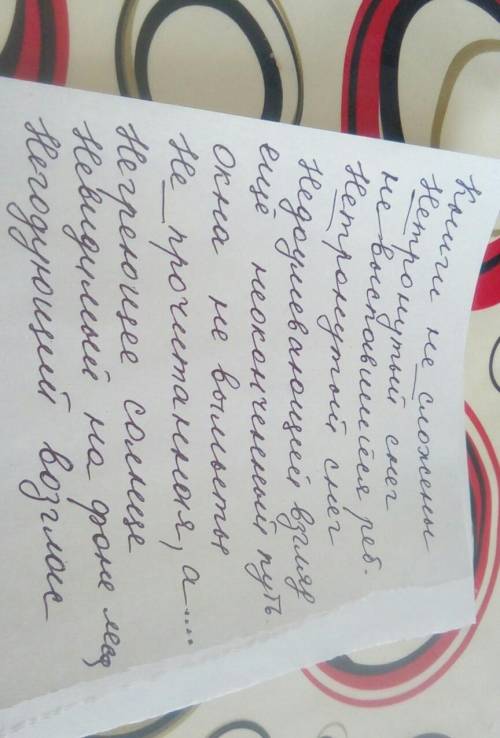 Книги не сложены
Нетронутый снег
не выспавшийся реб.
Нетронутый снег
Недоумевающий взгляд
ещё неоконченный путь.
окна не вымыты
Не прочитанная, а....
Негреющее солнце
Невидимый на фоне
Негодующий возглас